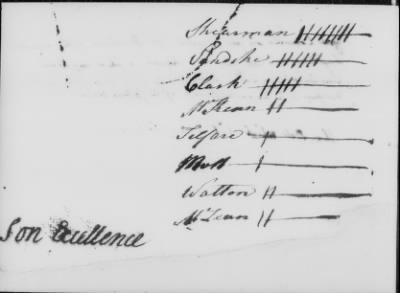 Shearman
Clark
McKean
Telfare
Mott
Walton
McLean
Son Excellence